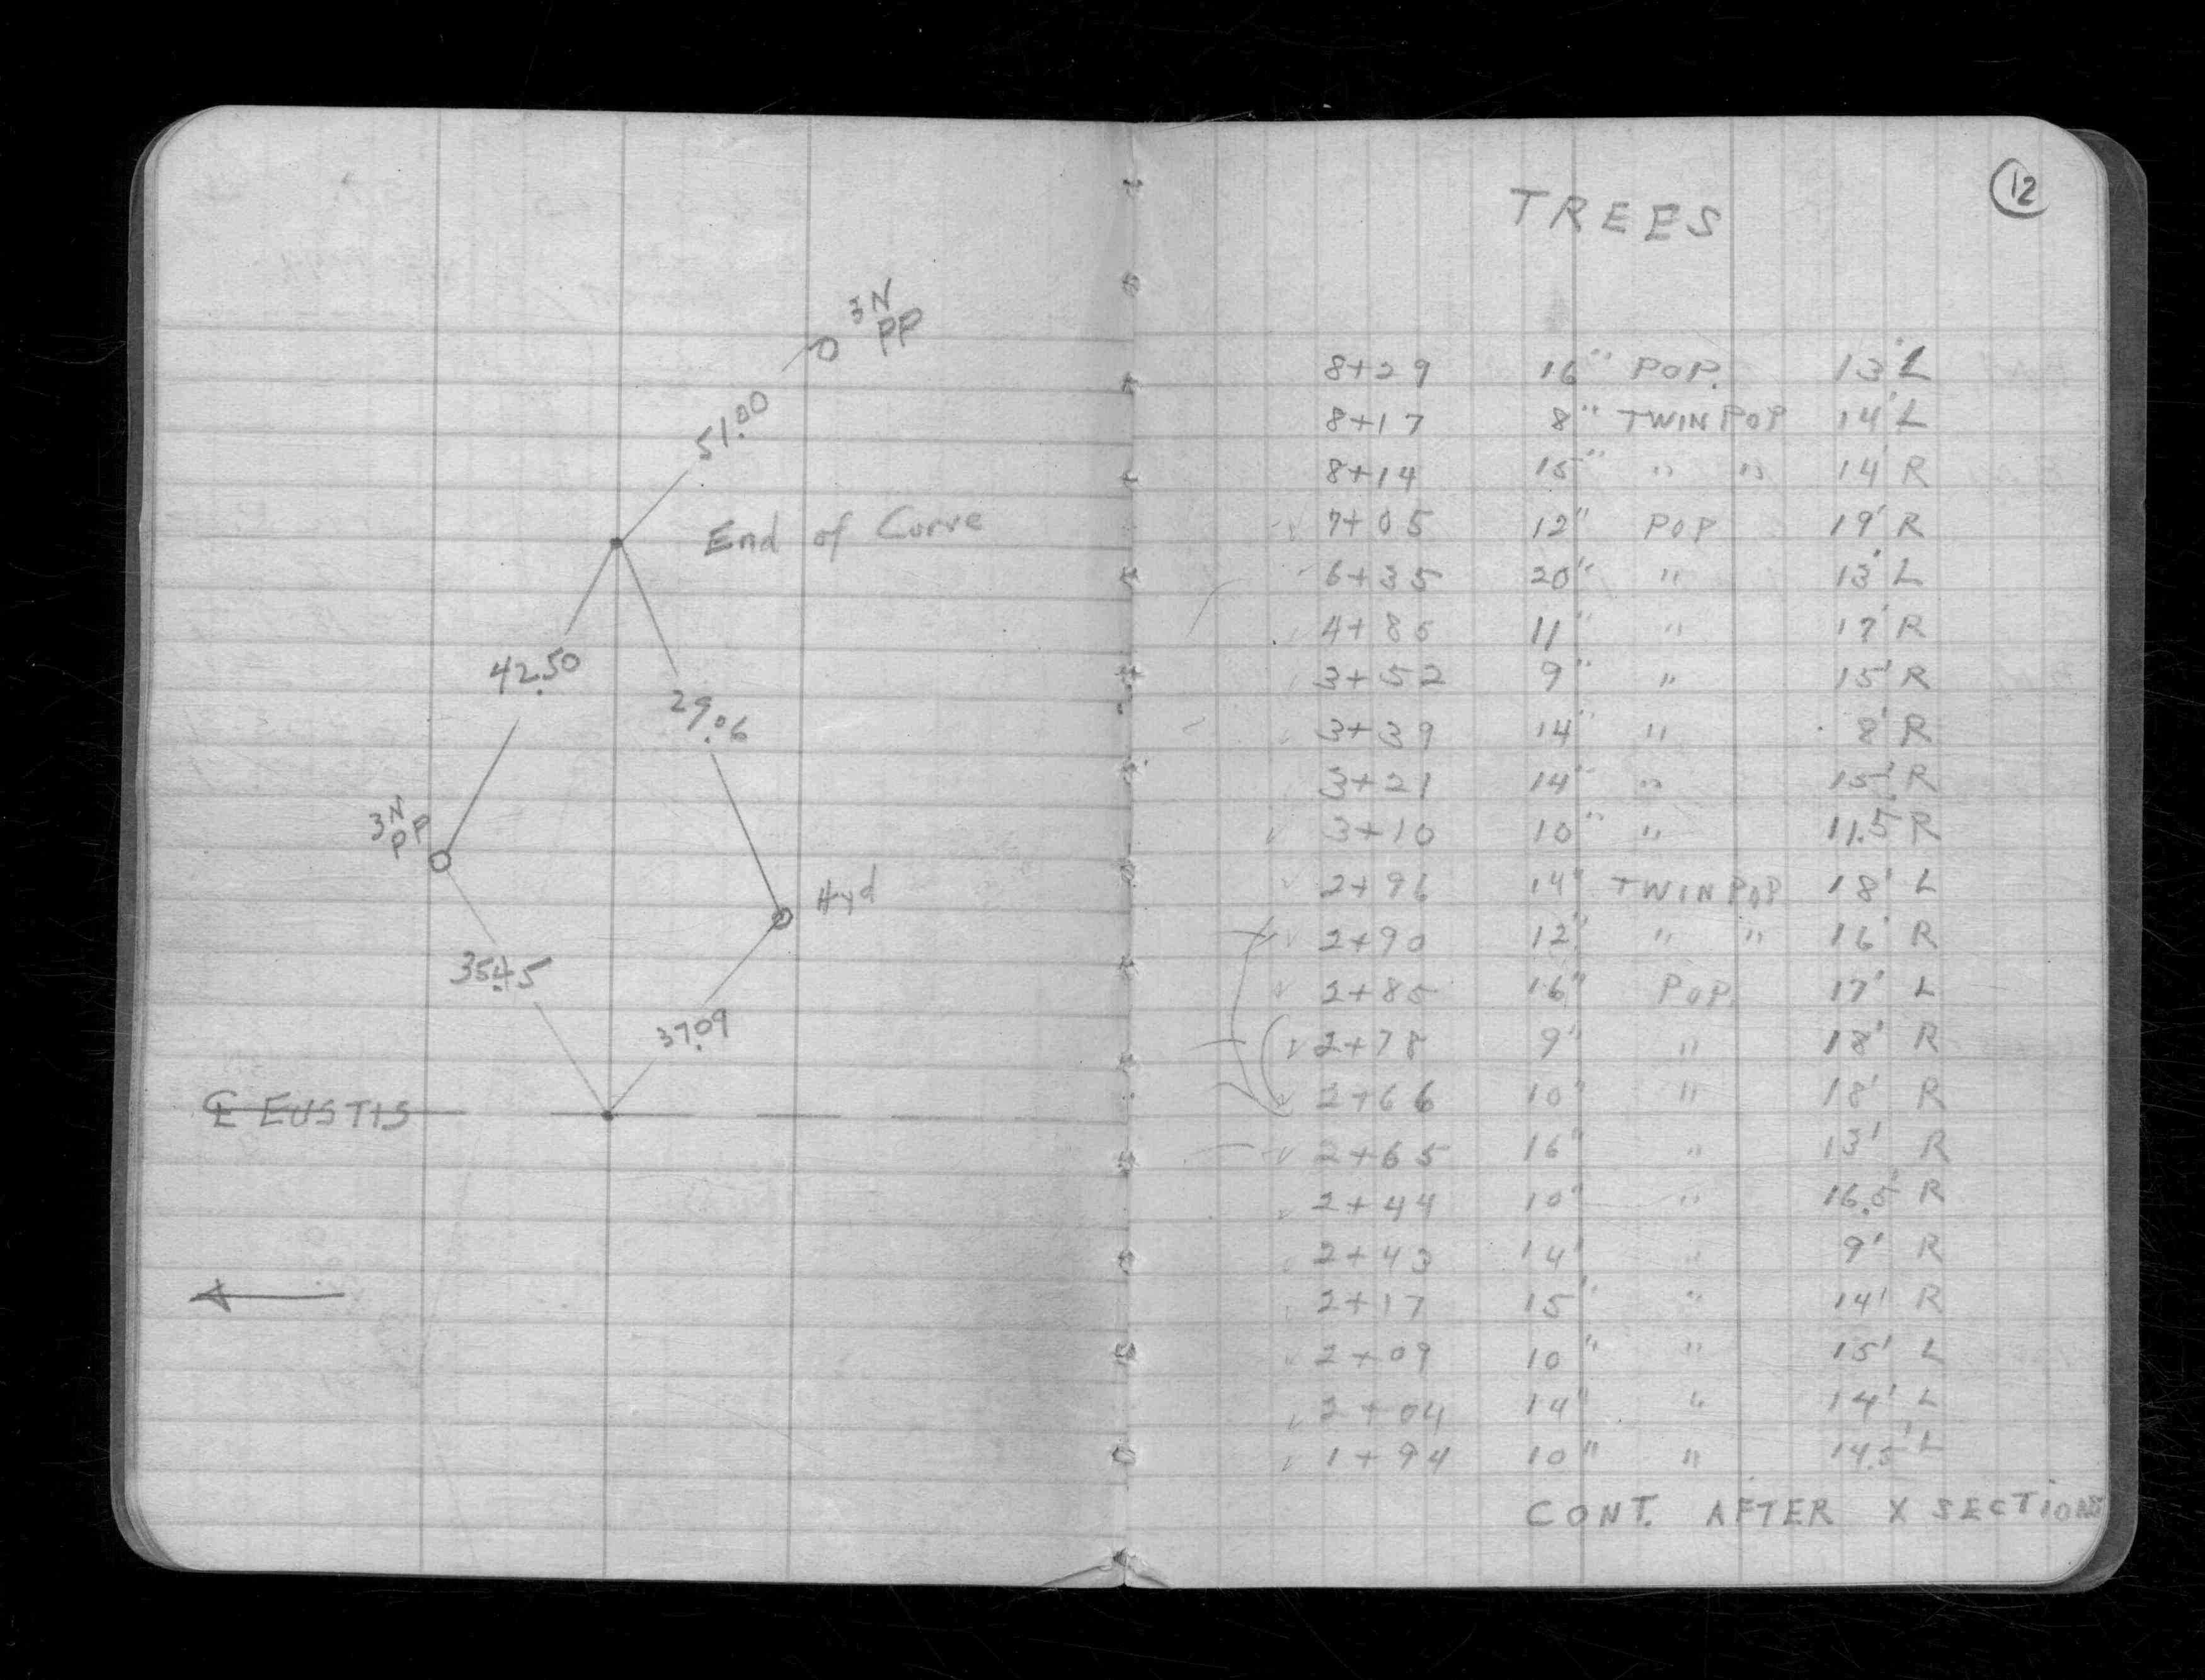 3N
PP
51.00
End of Curve
42.50
29.06
3N
PP
Hyd
35.45
37.09
℄ EUSTIS
12
TREES
8+29 16" POP. 13' L
8+17 8" TWIN POP 14' L
8+14 15" " " 14' R
7+05 12" POP 19' R
6+35 20" " 13' L
4+85 11" " 17' R
3+52 9" " 15' R
3+39 14" " 8' R
3+21 14" " 15' R
3+10 10" " 11.5' R
2+96 14" TWIN POP 18' L
2+90 12" " " 16' R
2+85 16" POP. 17' L
2+78 9" " 18' R
2+66 10" " 18' R
2+65 16" " 13' R
2+44 10" " 16.5' R
2+43 14" " 9' R
2+17 15" " 14' R
2+09 10" " 15' L
2+04 14" " 14' L
1+94 10" " 14.5' L
CONT. AFTER X SECTIONS